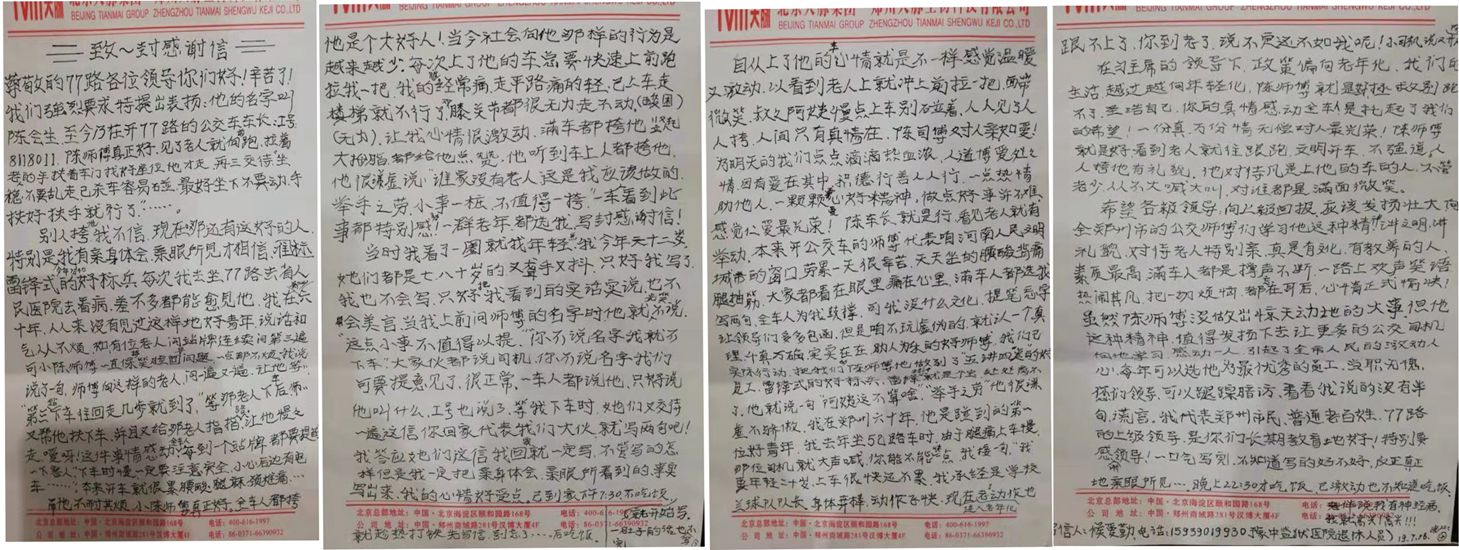 TVM天脉
BEIJING TIANMAI GROUP ZHENGZHOU TIANMAI SHENGWU KEJI CO.,LTD
致一封感谢信
尊敬的77路各位领导你们好！辛苦了！
我们强烈要求特提出表扬：他的名字叫
陈会生 至今乃在开77路的公交车车长、工号
8118011. 陈师傅真正好，见了老人就向跑，拉着
老的手扶着车门找好座位他才走，再三交待“坐
稳不要乱走已杀车容易
最好坐下不要动，手
扶好扶手就行了”……
别人挎我不信，现在那还有这好的人，
特别是我有亲身体会，亲眼所见才相信，
雷锋式的好标兵，每次我去坐77路去省人
民医院去看病，差不多都能愈见他，我在六
十年，从来没有见过这样地好青年，说话和
气人人不烦，
有位老人问站牌连续问第三遍
可小陈师傅一直
一点都不烦，我说
说了句，师傅向这样的老人，问一遍又一遍，让他等
第二下车往回走几步就到了”等那老人下后，师
又帮他扶下车，并且又给那老人指指，让他慢之
走暧呀！这件事情感动
每到一个站牌，都要提醒
一下老人“下车时慢一定要注意安全，小心后边有电
车……”本来开车就很累腰酸腿麻颈疼痛…
而他不耐其烦，小陈师傅真正好。全车人都挎
北京总部地址：中国·北京海淀区颐和园路168号 电话：400-616-1997
公司地址：中国·郑州商城路281号汉博大厦4F 电话：86-0371-66390932
BEIJING TIANMAI GROUP ZHENGZHOU TIANMAI SHENGWU KEJI CO.,LTD
他是个大好人！当今社会向他那样的行为是
越来越少。每次上了他的车总要快速上前跑
拉我一把，我的
经常痛，走平路痛的轻，已上车走
楼梯就不行了“膝关节都很无力走不动（酸困）
（无力），让我心情很激动，满车都挎他
竖起
大拇指都给他点赞，他听到车上人都挎他，
他很谦虚说“谁家没有老人这是我应该做的，
举手之劳，小事一桩，不值得一挎，”一车看到此
事都特别感！一群老年，都选我，写封感谢信！
当时我看了一圈就我年轻，我今年六十二岁
她们都是七、八十岁的又聋手又抖，只好我写了
我也不会写，只好把我看到的实话实说，也不
会美言，当我上前问师傅的名字时他就不说，
“这点小事不值得以提，”你不说名字我就不
下车”大家伙都说司机，你不说名字我们
可要提意见了，很正常，一车人都说他，只好说
他叫什么，工号也说了，等我下车时，她们又交待
一遍这信你回家代表我们大伙，就写两句吧！
我答应她们这信我回就一定写，不管写的怎
样但是我一定把亲身体会，亲眼所看到的事实
写出来，我的心情好受点，已到家下7:30不吃饭
开始写
就趁热打铁先写信，到忘了……后吃饭。
北京总部地址：中国·北京海淀区颐和园路168号 电话：400-616-1997
公司地址：中国·郑州商城路281号汉博大厦4F 电话：86-0371-66390932
BEIJING TIANMAI GROUP ZHENGZHOU TIANMAI SHENGWU KEJI CO.,LTD
自从上了他的车心情就是不一样感觉温暖
又激动，以看到老人上就冲上前拉一把，面带
微笑，叔父阿姨慢点上车别急着，人人见了人
人挎，人间只有真情在，陈司傅对人亲如爱！
为明天的我们点点滴滴热血浓，人道博爱处之
情，因有爱在其中，积德行善人人行，一点热情
助他人，一颗颗
好来精神，做点好事并不难，
感觉你受最光荣！陈车长就是行，看见老人就有
举动，本来开公交车的师傅代表咱河南人民文明
城市的窗口劳累一天很辛苦，天天坐的腰酸背痛
腿抽筋，大家都看在眼里痛在心里，满车人都选我
写两句，全车人为我致撑，可我没什么文化，提笔忘字
让领导们多多包函，但是咱不玩虚伪的，就认一个真
理，千真万确实实在在，助人为乐的好师傅，我们已
实体行动，把我们陈师傅他做到了五讲四美的好
员工，雷锋式的好标兵，
了，他就说一句“阿姨这不算啥”“举手之劳”他很谦
虚不骄傲，我在郑州六十年，他是碰到的第一
位好青年，我去年坐52路车时，由于腿痛上车慢，
那位司机就大声喊，你能不能
点，我接一句“我
年轻二十岁上车很快还不累，我
经是学校
球队队长，身体弃样，动作不快，现在老动作也
进入老年化
北京总部地址：中国·北京海淀区颐和园路168号 电话：400-616-1997
公司地址：中国·郑州商城路281号汉博大厦4F 电话：86-0371-66390932
TVM天脉
BEIJING TIANMAI GROUP ZHENGZHOU TIANMAI SHENGWU KEJI CO.,LTD
跟不上了，你到老了，说不定还不如我呢！小司机说
在习主席的领导下，政策偏向老年化，我们的
生活越过越向年轻化，陈师傅就是
不了，至谙自己，你的真情感动全车人是托起了我们
的希望！一份真，万份情无偿对人最光荣！陈师傅
就是好，看到老人就往跟跑，文明开车，不强道。人
人挎他有礼貌，他对待凡是上他的车的人，不管
老少从不大喊大叫，对谁都是满面微笑。
希望各级领导，向上级回报，应该发扬壮大向
全郑州市的公交师傅们学习他这种精
讲文明，讲
礼貌，对待老人特别亲，真是有文化，有教养的人，
素质最高，满车人都是掌声不断，一路上欢声笑语
热闹其凡，把一切烦恼，都在耳后，心情真正愉快！
虽然陈师傅没做出惊天动地的大事但他
这种精神，值得发扬下去让更多的公交司机
向他学习，感动一人，引起了全市人民的
动人
心，每年可以选他为最优秀的员工，当职无愧，
还们领导，可以跟踪暗访，看看我说的没有半
句谎言，我代表郑州市民、普通老百姓、77路
的上级领导，是你们长期教育地好！特别要
感领导！一口气写完，不知道写的好不好，反正真正
地亲眼所见…晚上22:30才吃饭，已激动也不知道吃饭，
我有神经病
北京总部地址：中国·北京海淀区颐和园路168号
公司地址：中国·郑州商城路281号汉博大厦4F 电话：86-0371-66390932
信人：候爱勤 电话：15939019930
医院退休人员）
19.7.18.